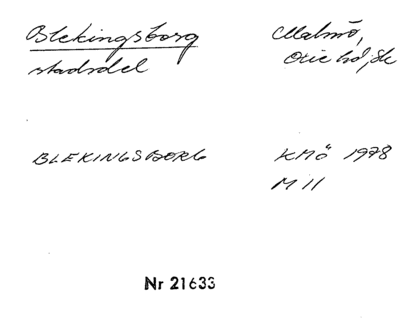 Blekingsborg
stadsdel
Malmö,
Oxie hd, Sk
BLEKINGSBORG
KMÖ 1978
M 11
Nr 21633